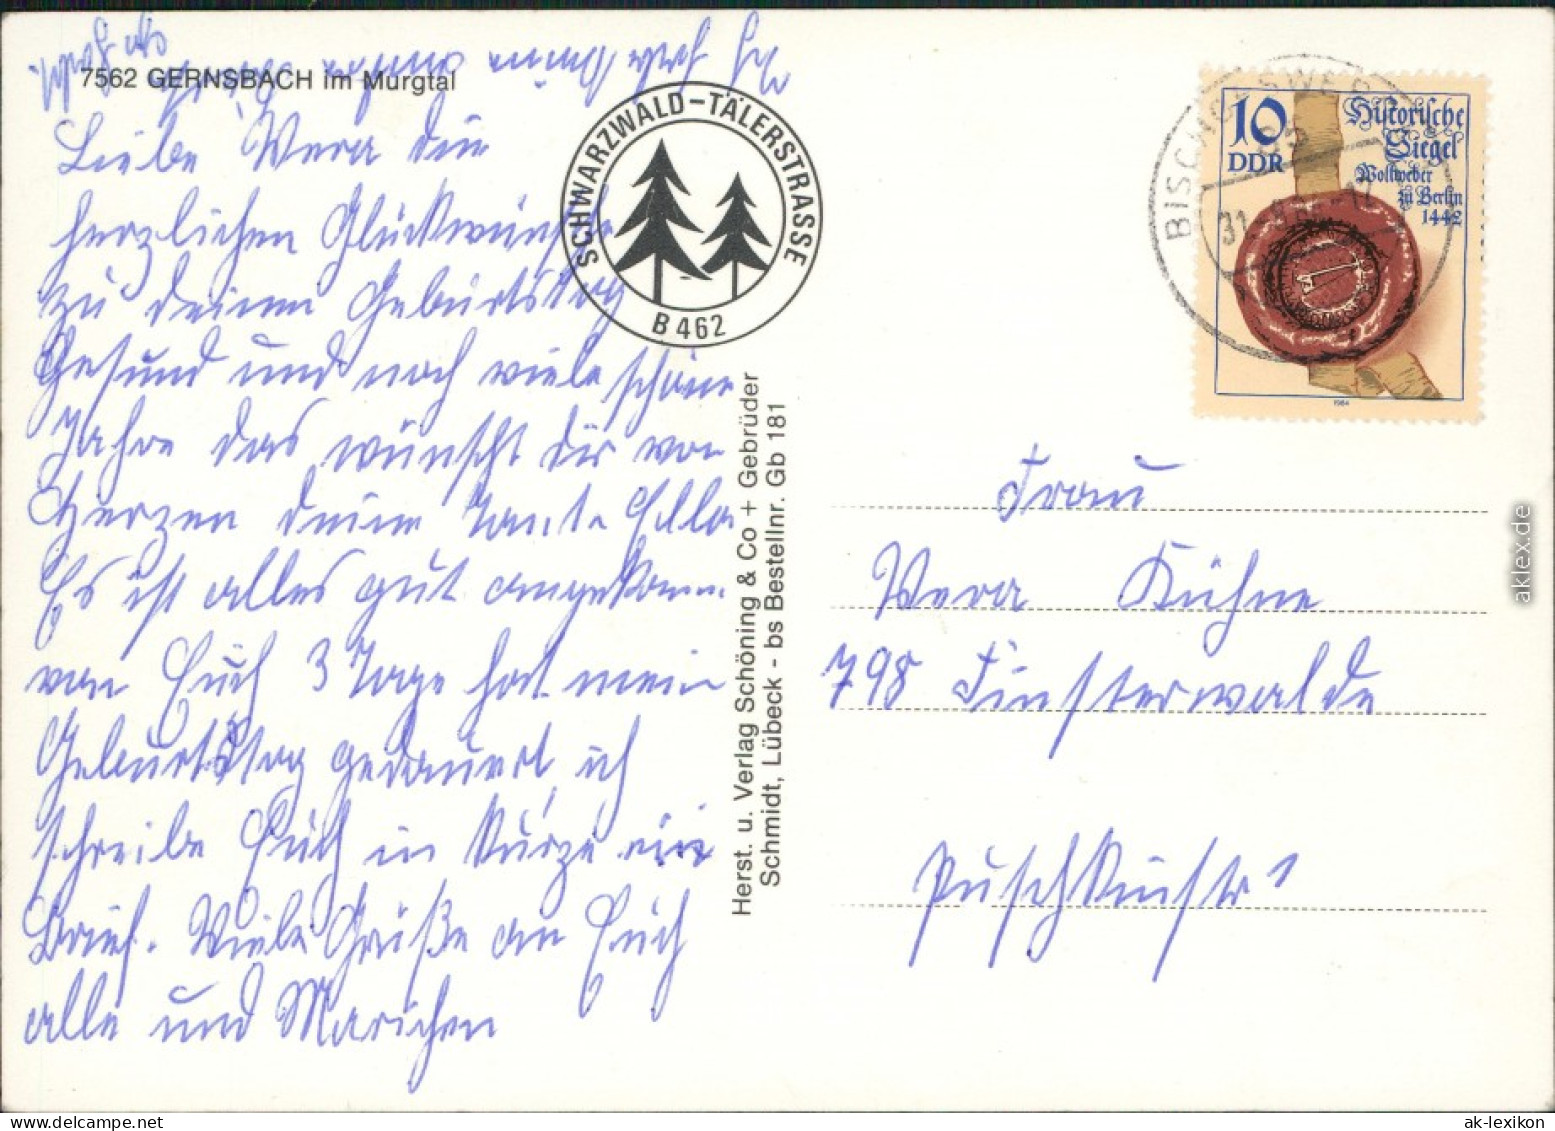 7562 GERNSBACH im Murgtal
Liebe Wera die
herzlichen Glückwünsche
zu deinem Geburtstag
Gesund und noch viele schöne
Jahre das wünscht dir von
Herzen deine Tante Ella
Es ist alles gut angekomm.
von Euch 3 Tage hat mein
Geburtstag gedauert, ich
schreibe Euch in Kürze ein
Brief. Viele Grüße an Euch
alle und Marichen
SCHWARZWALD-TÄLERSTRASSE
B 462
Herst. u. Verlag Schöning & Co + Gebrüder
Schmidt, Lübeck - bs Bestellnr. Gb 181
10
DDR
Historische
Siegel
Wollweber
zu Berlin
1442
1984
BISCHOFSWERDA
Frau
Wera Kühne
798 Finsterwalde
Puschkinstr 1
aklex.de
ak-lexikon